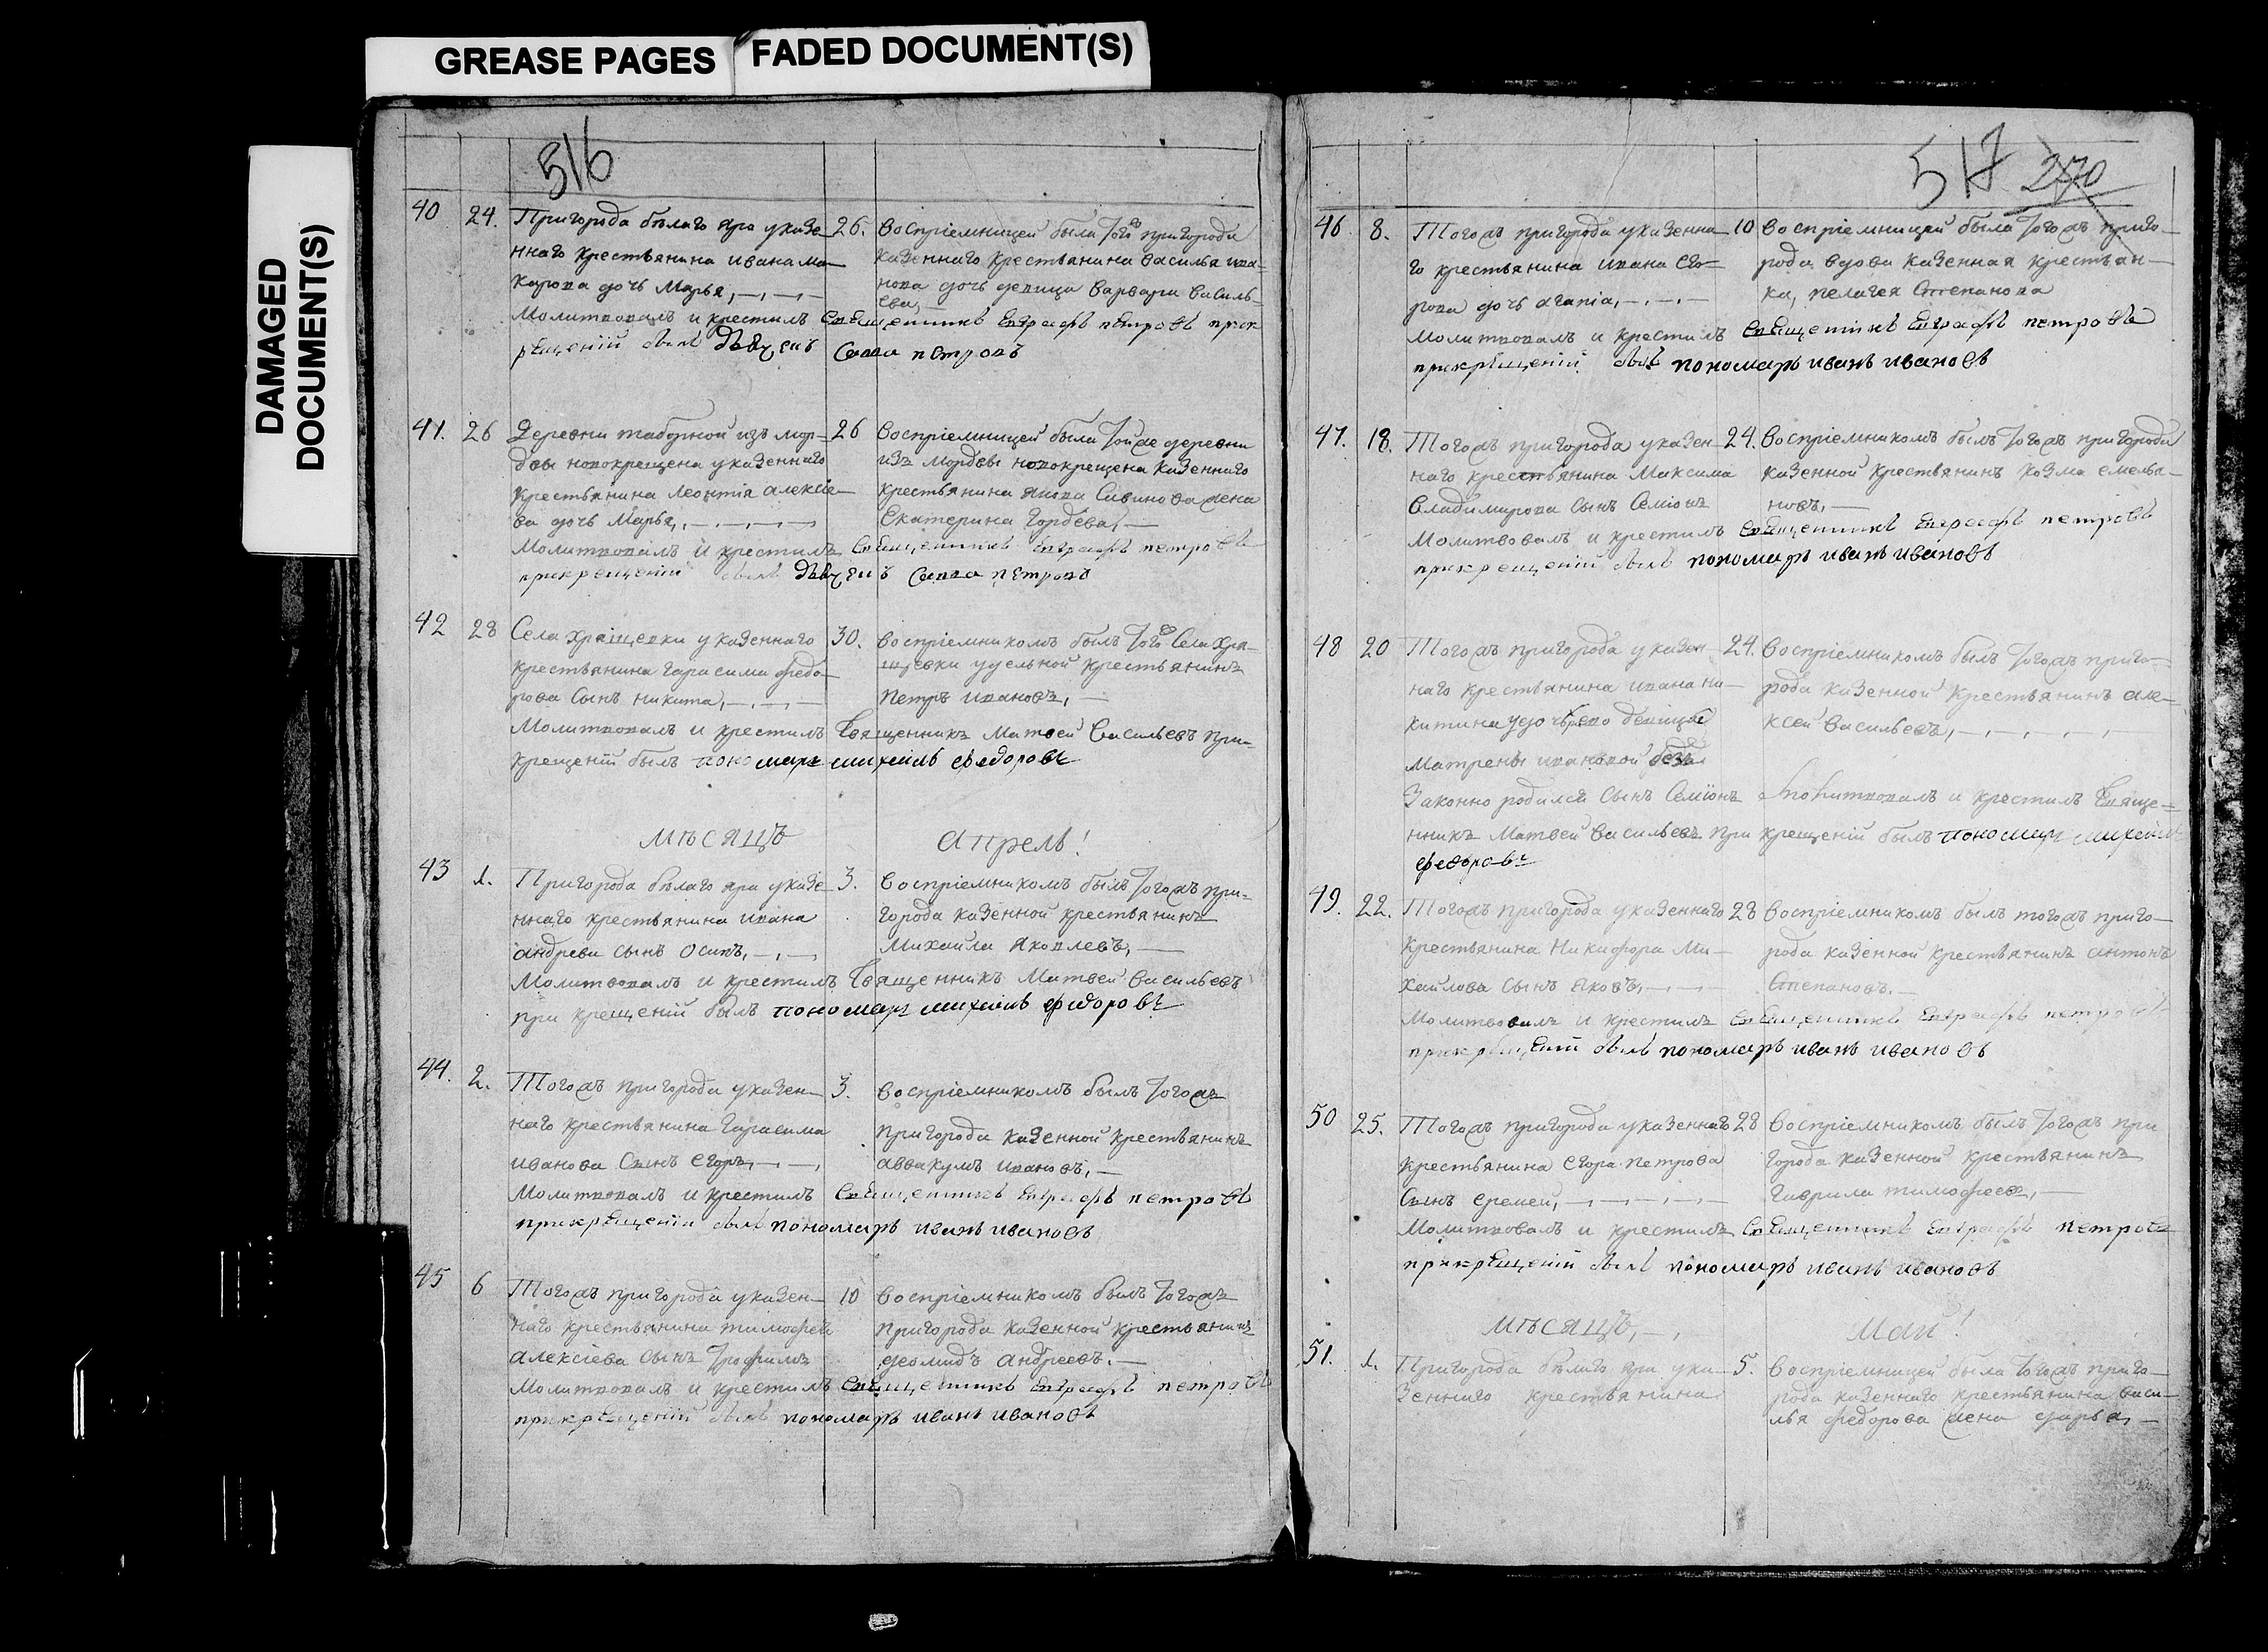 GREASE PAGES
FADED DOCUMENT(S)
DAMAGED
DOCUMENT(S)
516
40 24. Пригорода бѣлаго яра указе
ннаго крестьянина ивана ма
карова дочь Марья,
26. воспріемницей была того пригорода
казеннаго крестьянина василья ива=
нова дочь девица варвара василь=
ева,
Молитвовалъ и крестилъ священникъ Евграфъ петровъ при к
рещеніи былъ дьячекъ савва петровъ
41. 26 Деревни таборной изъ мор=
двы новокрещена указеннаго
крестьянина леонтія алексіе
ва дочь Марья,
26 воспріемницей была тойже деревни
изъ мордвы новокрещена казеннаго
крестьянина якова Савинова жена
Екатерина Гордѣева,
Молитвовалъ и крестилъ священникъ Евграфъ петровъ
прикрещеніи былъ дьячекъ савва петровъ
42 28 Села хращевки указеннаго
крестьянина гарасима федо
рова сынъ никита,
30. воспріемникомъ былъ того села хра=
щевки удельной крестьянинъ
петръ ивановъ,
Молитвовалъ и крестилъ Священникъ Матвей васильевъ при
крещеніи былъ пономарь михаилъ федоровъ
мѣсяцъ апрель!
43 1. Пригорода бѣлаго яра указе
ннаго крестьянина ивана
андреева сынъ осипъ,
3. воспріемникомъ былъ тогожъ при=
города казенной крестьянинъ
Михаила яковлевъ,
Молитвовалъ и крестилъ Священникъ Матвей васильевъ
при крещеніи былъ пономарь михаилъ федоровъ
44. 2. Тогожъ пригорода указен
наго крестьянина гарасима
иванова сынъ егоръ,
3. воспріемникомъ былъ тогожъ
пригорода казенной крестьянинъ
аввакумъ ивановъ,
Молитвовалъ и крестилъ священникъ Евграфъ петровъ
прикрещеніи былъ пономарь иванъ ивановъ
45 6 Тогожъ пригорода указен
наго крестьянина тимофея
алексіева сынъ трофимъ
10 воспріемникомъ былъ тогожъ
пригорода казенной крестьянинъ
деомидъ андреевъ.
Молитвовалъ и крестилъ священникъ Евграфъ петровъ
прикрещеніи былъ пономарь иванъ ивановъ
517 270
46 8. Тогожъ пригорода указенна
го крестьянина ивана его=
рова дочь агапія,
10 воспріемницей была тогожъ приго
рода вдова казенная крестьян
ка, пелагея Степанова
Молитвовалъ и крестилъ священникъ Евграфъ петровъ
прикрещеніи былъ пономарь иванъ ивановъ
47. 18. Тогожъ пригорода указен
наго крестьянина Максима
владимирова сынъ Семіонъ
24. воспріемникомъ былъ тогожъ пригорода
казенной крестьянинъ козма емелья
новъ,
Молитвовалъ и крестилъ священникъ Евграфъ петровъ
прикрещеніи былъ пономарь иванъ ивановъ
48 20 Тогожъ пригорода указен
наго крестьянина ивана ни
китина девицы
матрены ивановой
24. воспріемникомъ былъ тогожъ приго=
рода казенной крестьянинъ але
ксей васильевъ,
Законно родился сынъ Семіонъ Молитвовалъ и крестилъ Свяще=
нникъ Матвей васильевъ при крещеніи былъ пономарь михаилъ
федоровъ
49. 22. Тогожъ пригорода указеннаго
крестьянина Никифора Ми
хайлова сынъ яковъ,
28 воспріемникомъ былъ тогожъ приго
рода казенной крестьянинъ антонъ
Степановъ.
Молитвовалъ и крестилъ священникъ Евграфъ петровъ
прикрещеніи былъ пономарь иванъ ивановъ
50 25. Тогожъ пригорода указеннаго
крестьянина егора петрова
сынъ еремей,
28 воспріемникомъ былъ тогожъ при
города казенной крестьянинъ
гаврила тимофеевъ,
Молитвовалъ и крестилъ священникъ Евграфъ петровъ
прикрещеніи былъ пономарь иванъ ивановъ
мѣсяцъ, май!
51. 1. Пригорода бѣлаго яра ука
зеннаго крестьянина
5. воспріемницей была тогожъ приго
рода казеннаго крестьянина васи
лья федорова жена дарья,